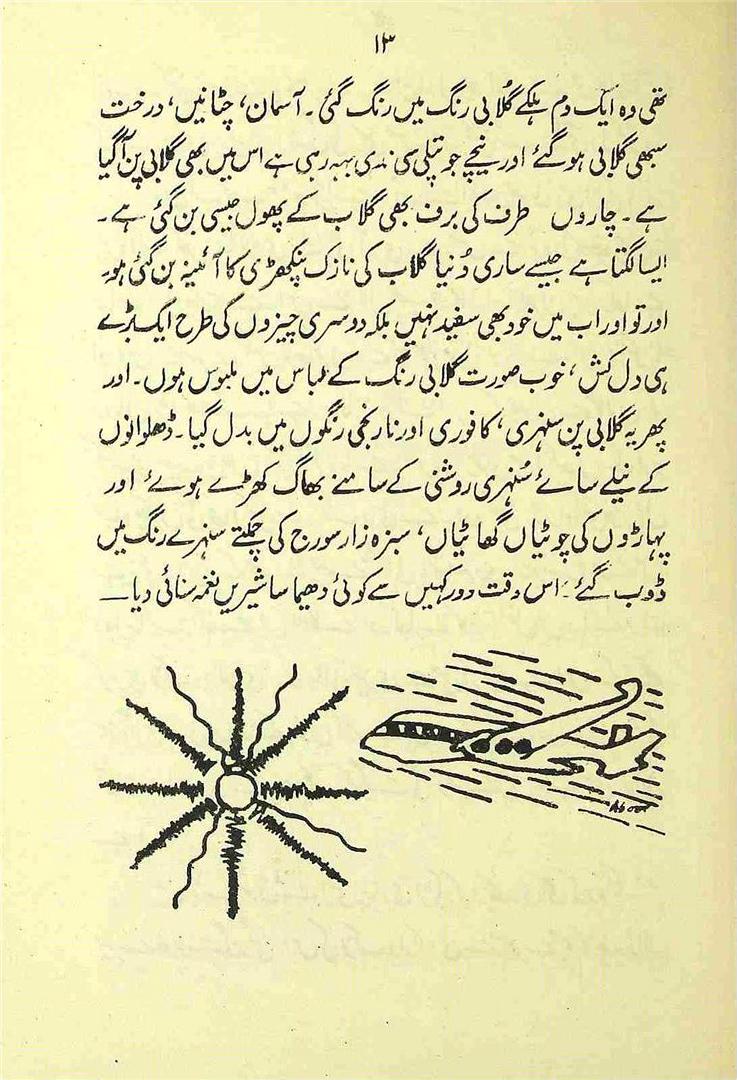 ۱۳
تھی وہ ایک دم ہلکے گلابی رنگ میں رنگ گئی۔ آسمان، چٹانیں، درخت
سبھی گلابی ہوگئے اور نیچے جو پتلی سی ندی بہہ رہی ہے اس میں بھی گلابی پن آگیا
ہے۔ چاروں طرف کی برف بھی گلاب کے پھول جیسی بن گئی ہے۔
ایسا لگتا ہے جیسے ساری دُنیا گلاب کی نازک پنکھڑی کا آئینہ بن گئی ہو۔
اور تو اور اب میں خود بھی سفید نہیں بلکہ دوسری چیزوں کی طرح ایک بڑے
ہی دل کش، خوب صورت گلابی رنگ کے لباس میں ملبوس ہوں۔ اور
پھر یہ گلابی پن سنہری، کافوری اور نارنجی رنگوں میں بدل گیا۔ ڈھلوانوں
کے نیلے سائے سُنہری روشنی کے سامنے بھاگ کھڑے ہوئے اور
پہاڑوں کی چوٹیاں گھاٹیاں، سبزہ زار سورج کی چمکتے سنہرے رنگ میں
ڈوب گئے۔ اس وقت دور کہیں سے کوئی دھیما سا شیریں نغمہ سنائی دیا—